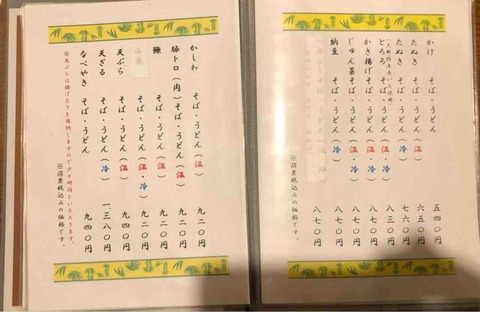 かけ そば・うどん 五四〇円
たぬき そば・うどん(温) 六五〇円
たぬき そば・うどん(冷) 七六〇円
とろろ そば・うどん(冷) 八三〇円
かき揚げ そば・うどん(温) 八七〇円
じゅん菜 そば・うどん(温・冷) 八七〇円
納豆 そば・うどん(冷) 八七〇円
※消費税込みの価格です。
かしわ そば・うどん(温) 九二〇円
豚トロ(肉)そば・うどん(温) 九二〇円
鰊 そば・うどん(温) 九二〇円
山菜 そば・うどん(温・冷) 九二〇円
天ぷら そば・うどん(温) 九四〇円
天ざる そば・うどん(冷) 一三八〇円
なべやき そば・うどん 九四〇円
※消費税込みの価格です。
※天ぷらは揚げたてを提供しますので少々時間をいただきます。